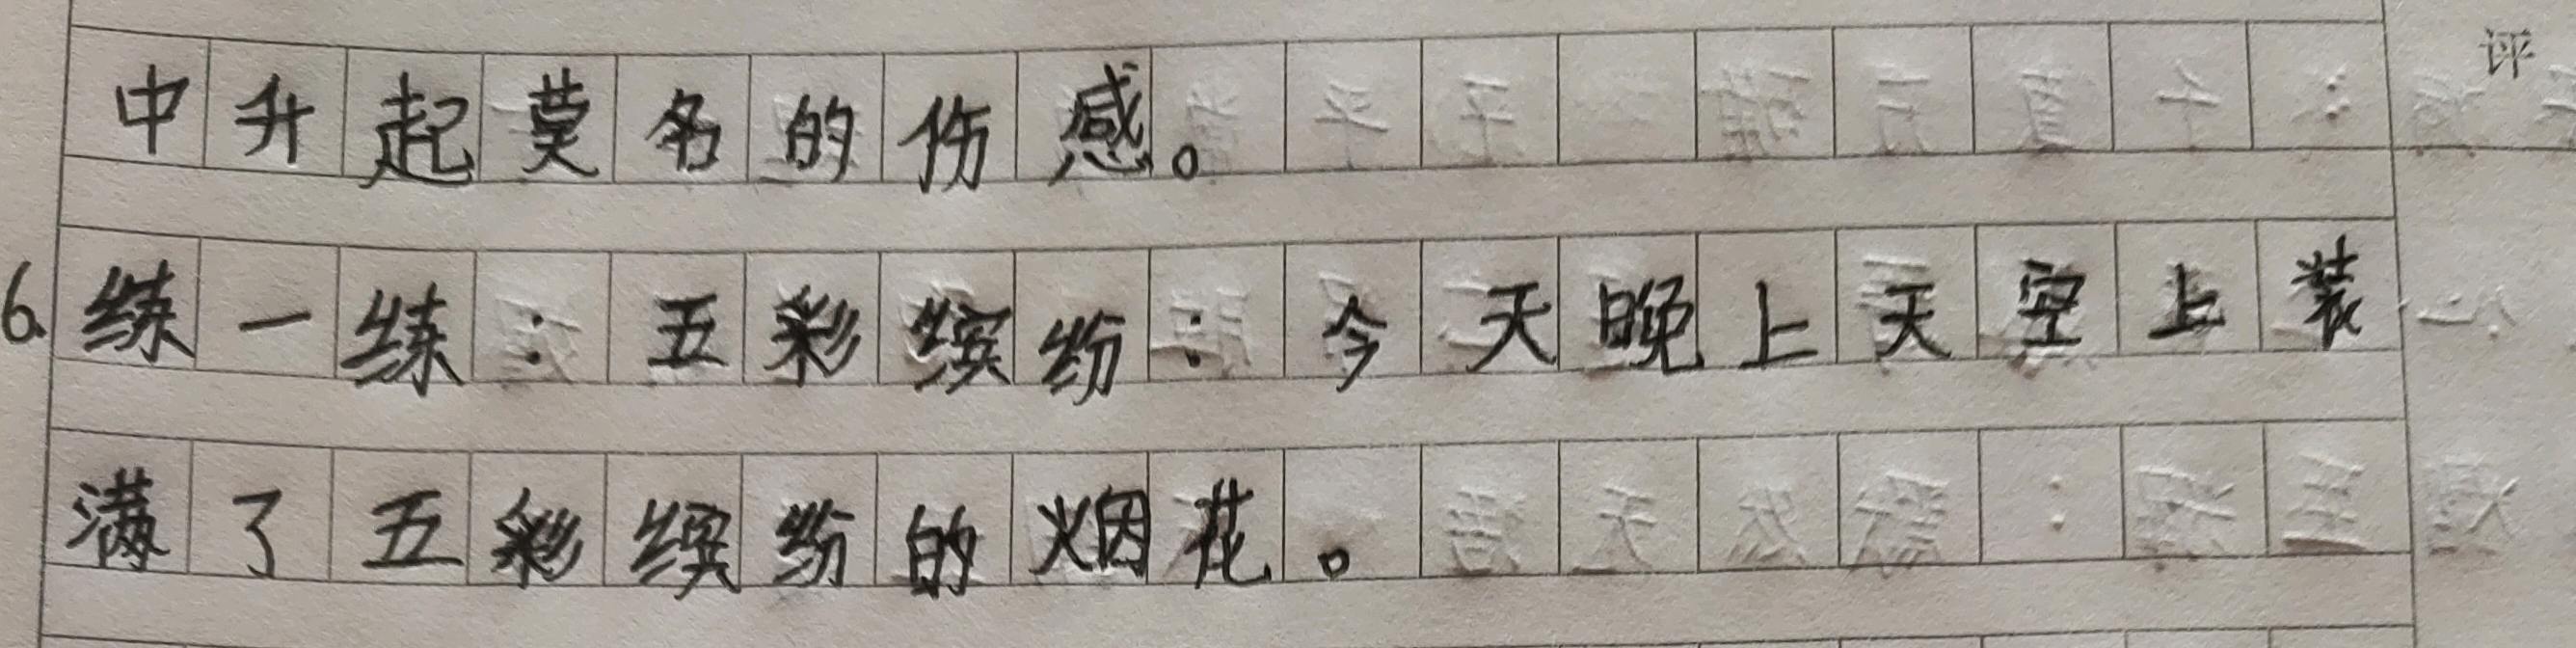 评
中升起莫名的伤感。
6.练一练：五彩缤纷：今天晚上天空上装
满了五彩缤纷的烟花。